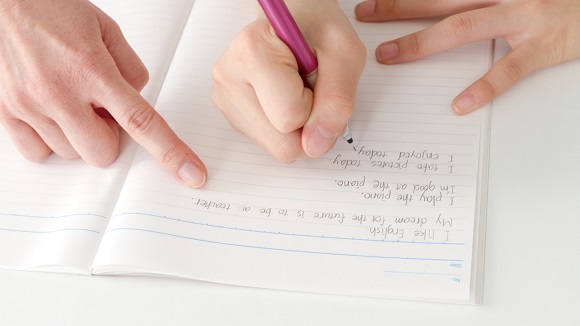 No.
Date
I like English.
My dream for the future is to be a teacher.
I play the piano.
I'm good at the piano.
I take pictures today.
I enjoyed today.